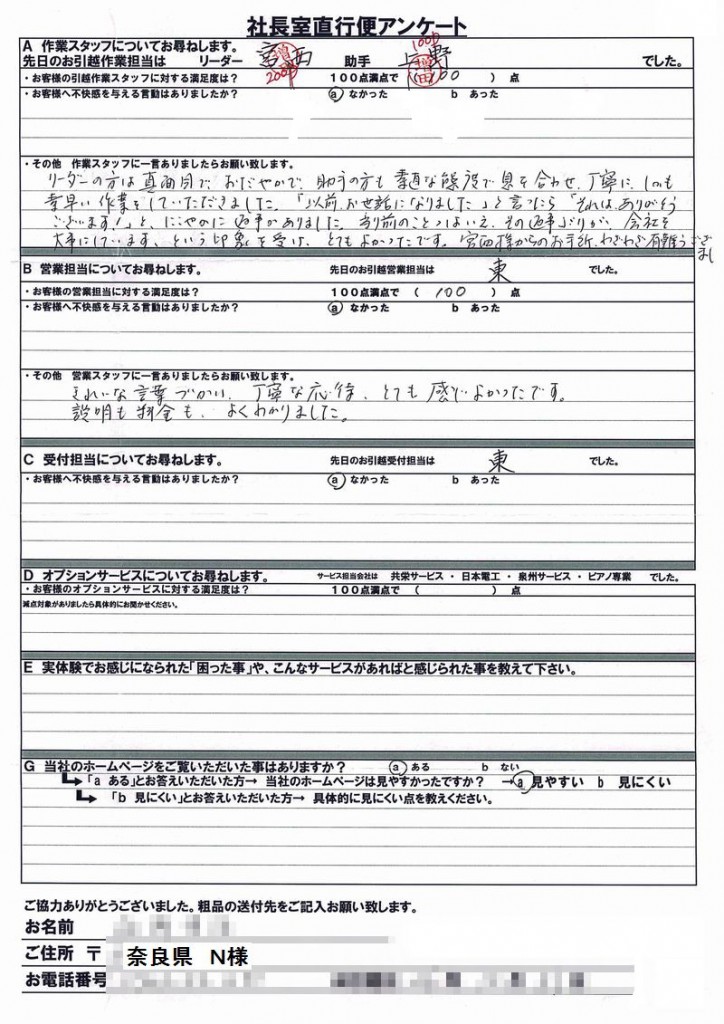 社長室直行便アンケート
A 作業スタッフについてお尋ねします。
先日のお引越作業担当は リーダー 宮西 助手 上野 でした。
200P 100P
・お客様の引越作業スタッフに対する満足度は? 100点満点で ( 100 ) 点
・お客様へ不快感を与える言動はありましたか? a なかった b あった
・その他 作業スタッフに一言ありましたらお願い致します。
リーダーの方は真面目で、おだやかで、助手の方も素直な態度で息を合わせ、丁寧に、しかも
素早い作業をしていただきました。「以前、お世話になりました」と言ったら「それは、ありがとう
ございます!」と、にこやかに返事がありました。当り前のこととはいえ、その返事ぶりが、会社を
大事にしています、という印象を受け、とてもよかったです。宮西様からのお手紙、わざわざ有難うござい
まし
B 営業担当についてお尋ねします。 先日のお引越営業担当は 東 でした。
・お客様の営業担当に対する満足度は? 100点満点で ( 100 ) 点
・お客様へ不快感を与える言動はありましたか? a なかった b あった
・その他 営業スタッフに一言ありましたらお願い致します。
きれいな言葉づかい、丁寧な応待、とても感じよかったです。
説明も料金も、よくわかりました。
C 受付担当についてお尋ねします。 先日のお引越受付担当は 東 でした。
・お客様へ不快感を与える言動はありましたか? a なかった b あった
D オプションサービスについてお尋ねします。 サービス担当会社は 共栄サービス ・ 日本電工 ・ 泉州サービス ・ ピアノ専業 でした。
・お客様のオプションサービスに対する満足度は? 100点満点で ( ) 点
減点対象がありましたら具体的にお聞かせください。
E 実体験でお感じになられた「困った事」や、こんなサービスがあればと感じられた事を教えて下さい。
G 当社のホームページをご覧いただいた事はありますか? a ある b ない
「a ある」とお答えいただいた方→ 当社のホームページは見やすかったですか? →a 見やすい b 見にくい
「b 見にくい」とお答えいただいた方→ 具体的に見にくい点を教えください。
ご協力ありがとうございました。粗品の送付先をご記入お願い致します。
お名前
ご住所 〒 奈良県 N様
お電話番号